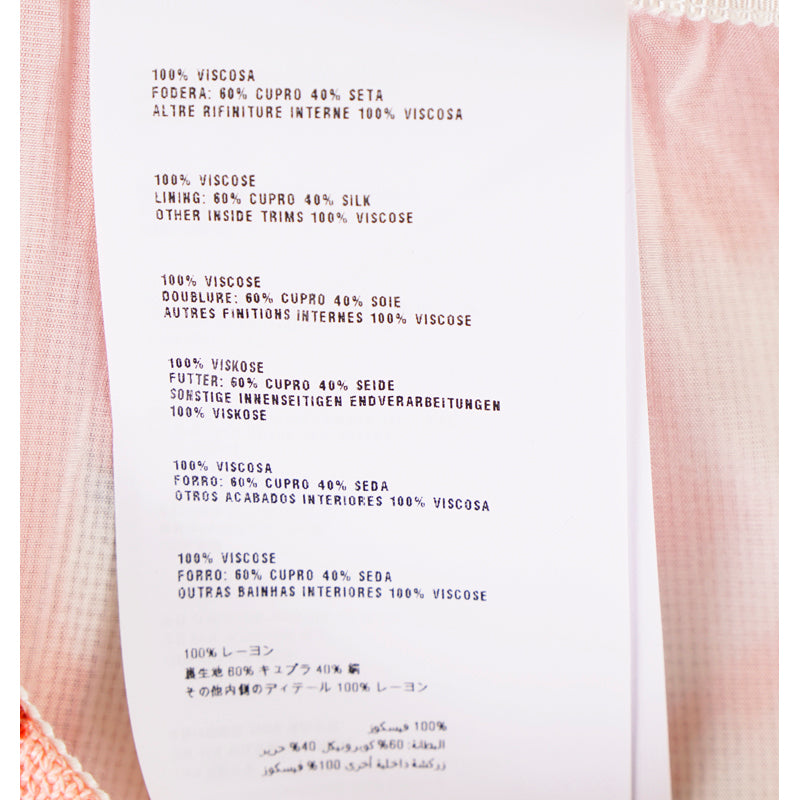 100% VISCOSA
FODERA: 60% CUPRO 40% SETA
ALTRE RIFINITURE INTERNE 100% VISCOSA
100% VISCOSE
LINING: 60% CUPRO 40% SILK
OTHER INSIDE TRIMS 100% VISCOSE
100% VISCOSE
DOUBLURE: 60% CUPRO 40% SOIE
AUTRES FINITIONS INTERNES 100% VISCOSE
100% VISKOSE
FUTTER: 60% CUPRO 40% SEIDE
SONSTIGE INNENSEITIGEN ENDVERARBEITUNGEN
100% VISKOSE
100% VISCOSA
FORRO: 60% CUPRO 40% SEDA
OTROS ACABADOS INTERIORES 100% VISCOSA
100% VISCOSE
FORRO: 60% CUPRO 40% SEDA
OUTRAS BAINHAS INTERIORES 100% VISCOSE
100% レーヨン
裏生地 60% キュプラ 40% 絹
その他内側のディテール 100% レーヨン
100% فيسكوز
البطانة: 60% كوبرونيكل 40% حرير
زركشة داخلية أخرى 100% فيسكوز